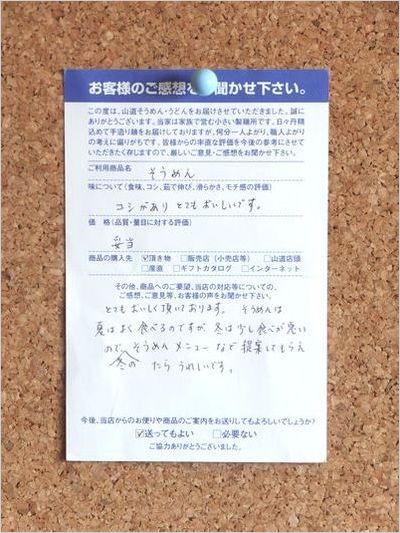 お客様のご感想をお聞かせ下さい。
この度は、山道そうめん・うどんをお届けさせていただきました。誠に
ありがとうございます。当家は家族で営む小さい製麺所です。日々丹精
込めて手造り麺をお届けしておりますが、何分一人よがり、職人よがり
の考えに偏りがちです。皆様からの率直な評価を今後の参考にさせて
いただきたく存じますので、厳しいご意見・ご感想をお聞かせ下さい。
ご利用商品名
そうめん
味について(食味、コシ、茹で伸び、滑らかさ、モチ感の評価)
コシがあり とても おいしいです。
価 格(品質・量目に対する評価)
妥当
商品の購入先 ☑頂き物 □販売店(小売店等) □山道店頭
□産直 □ギフトカタログ □インターネット
その他、商品へのご要望、当店の対応等についての、
ご感想、ご意見等、お客様の声をお聞かせ下さい。
とても おいしく 頂いております。 そうめんは
夏は よく 食べるのですが 冬は 少し 食べが悪い
ので、そうめん メニュー など 提案してもらえ
冬の たら うれしいです。
今後、当店からのお便りや商品のご案内をお送りしてもよろしいでしょうか?
☑送ってもよい □必要ない
ご協力ありがとうございました。